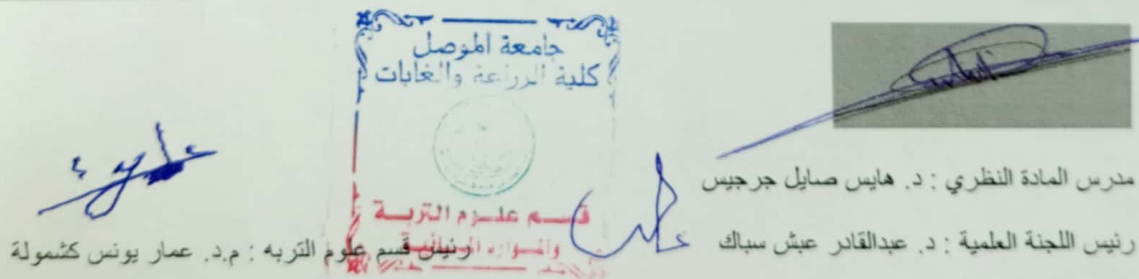 جامعة الموصل
كلية الزراعة والغابات
قسم علوم التربة
والموارد المائية
مدرس المادة النظري : د. هايس صايل جرجيس
رئيس اللجنة العلمية : د. عبدالقادر عبش سباك
رئيس قسم علوم التربه : م.د. عمار يونس كشمولة